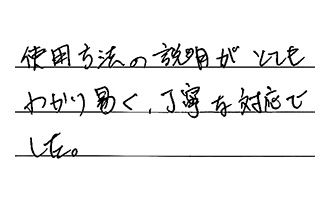 使用方法の説明がとても
わかり易く、丁寧な対応で
した。